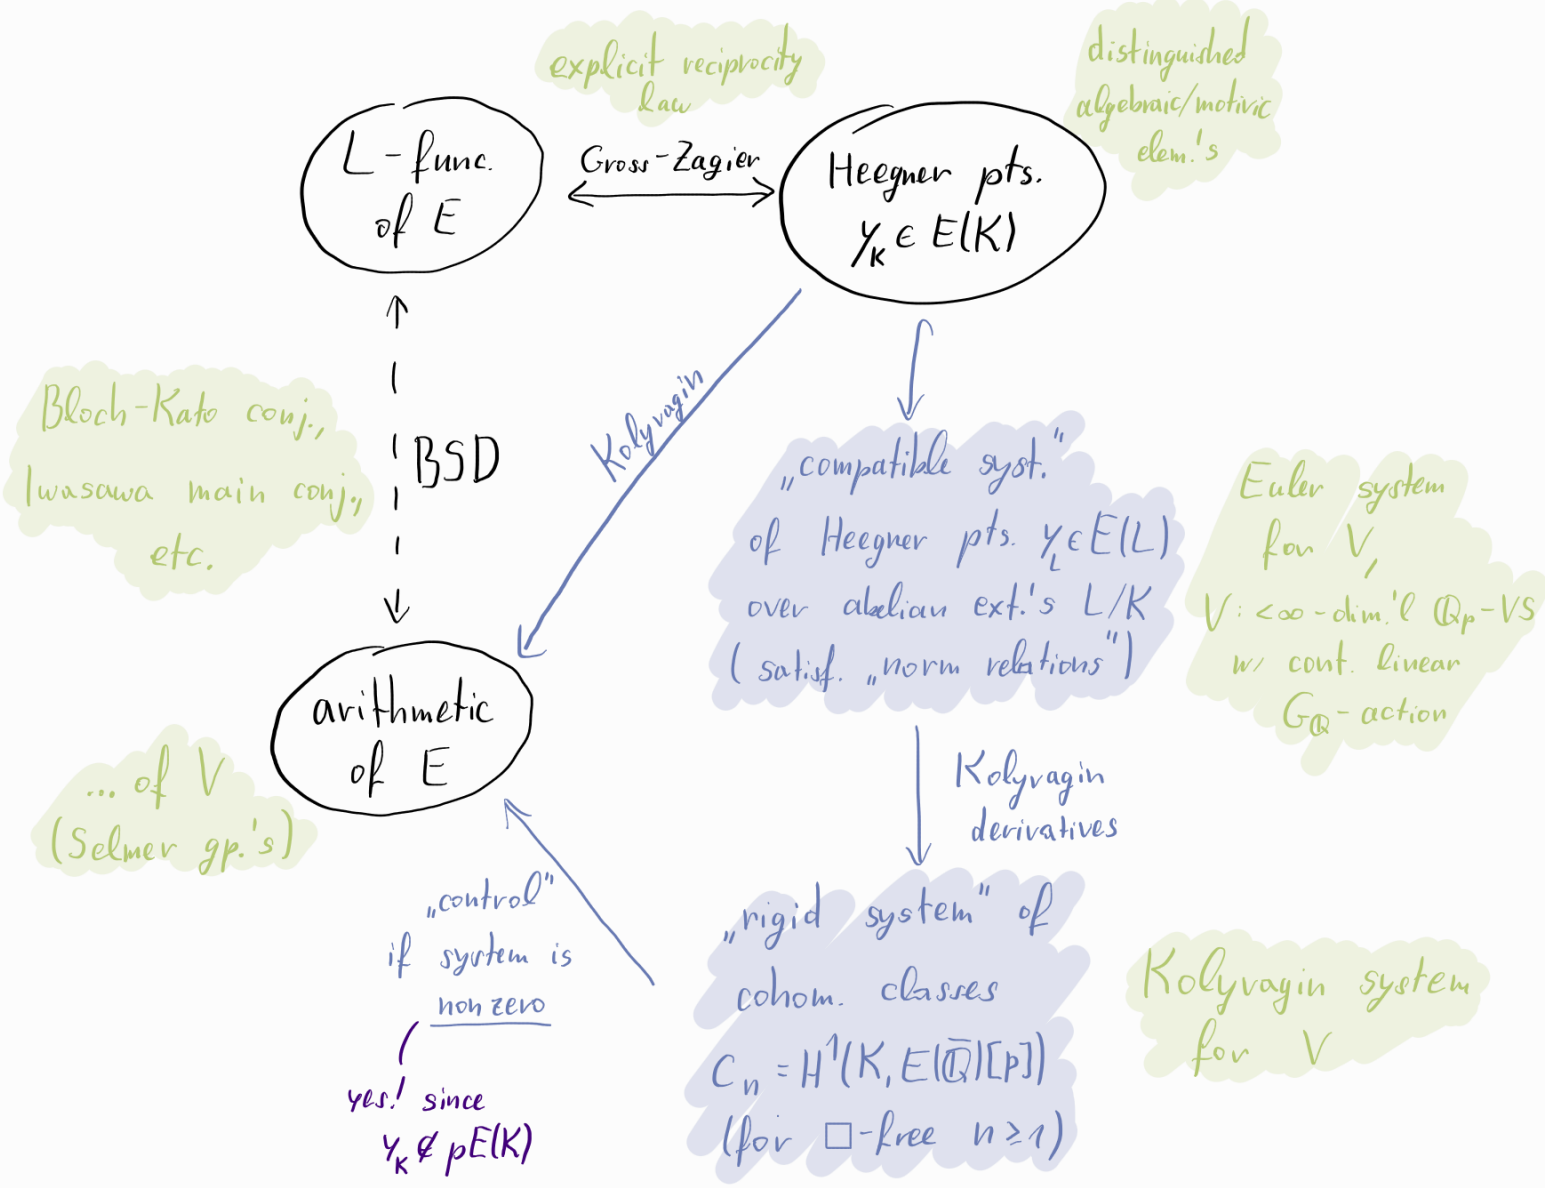 explicit reciprocity
law
distinguished
algebraic/motivic
elem.'s
L-func.
of E
Gross-Zagier
Heegner pts.
y_K ∈ E(K)
Kolyvagin
Bloch-Kato conj.,
Iwasawa main conj.,
etc.
BSD
„compatible syst."
of Heegner pts. y_L ∈ E(L)
over abelian ext.'s L/K
(satisf. „norm relations")
Euler system
for V,
V: <∞-dim.'l ℚp-VS
w/ cont. linear
G_ℚ-action
arithmetic
of E
... of V
(Selmer gp.'s)
Kolyvagin
derivatives
„control"
if system is
nonzero
yes! since
y_K ∉ pE(K)
„rigid system" of
cohom. classes
C_n = H¹(K, E(ℚ̄)[p])
(for □-free n ≥ 1)
Kolyvagin system
for V